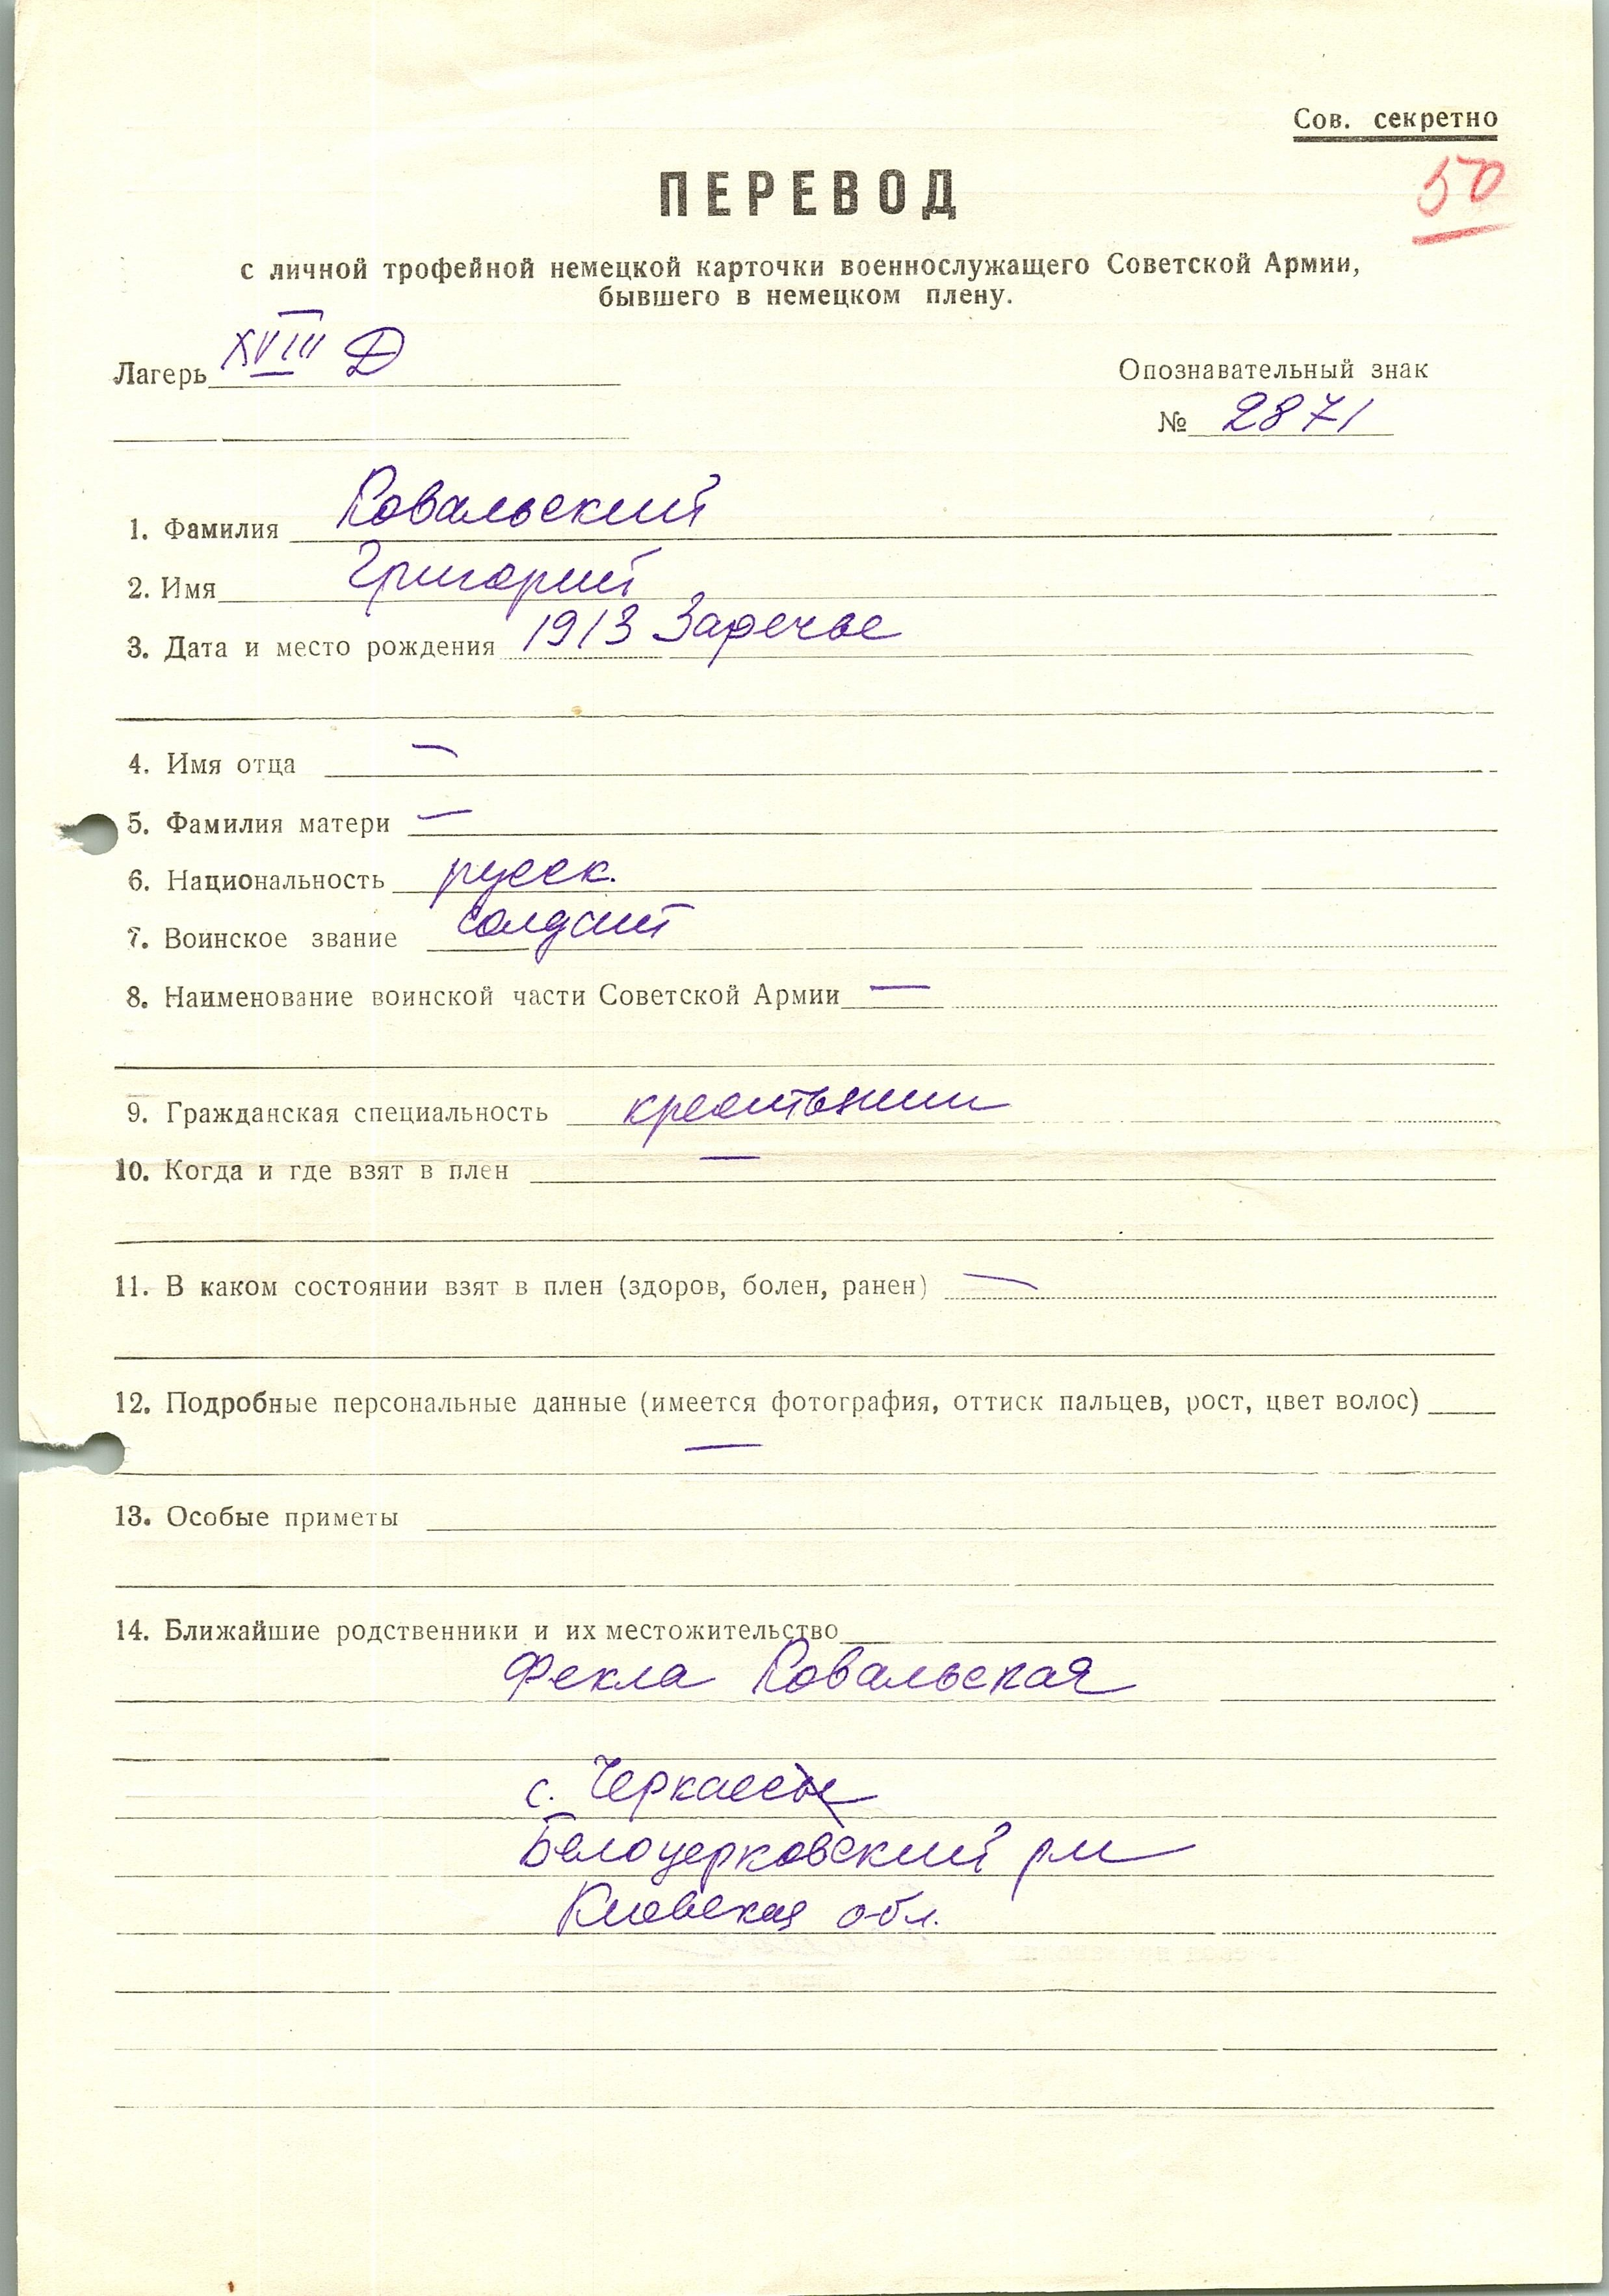 Сов. секретно
50
ПЕРЕВОД
с личной трофейной немецкой карточки военнослужащего Советской Армии,
бывшего в немецком плену.
Лагерь XVIII Д
Опознавательный знак
№ 2871
1. Фамилия Ковальский
2. Имя Григорий
3. Дата и место рождения 1913 Заречье
4. Имя отца —
5. Фамилия матери —
6. Национальность русск.
7. Воинское звание солдат
8. Наименование воинской части Советской Армии —
9. Гражданская специальность крестьянин
10. Когда и где взят в плен —
11. В каком состоянии взят в плен (здоров, болен, ранен) —
12. Подробные персональные данные (имеется фотография, оттиск пальцев, рост, цвет волос)
—
13. Особые приметы
14. Ближайшие родственники и их местожительство
Фекла Ковальская
с.
Белоцерковский рн
Киевская обл.